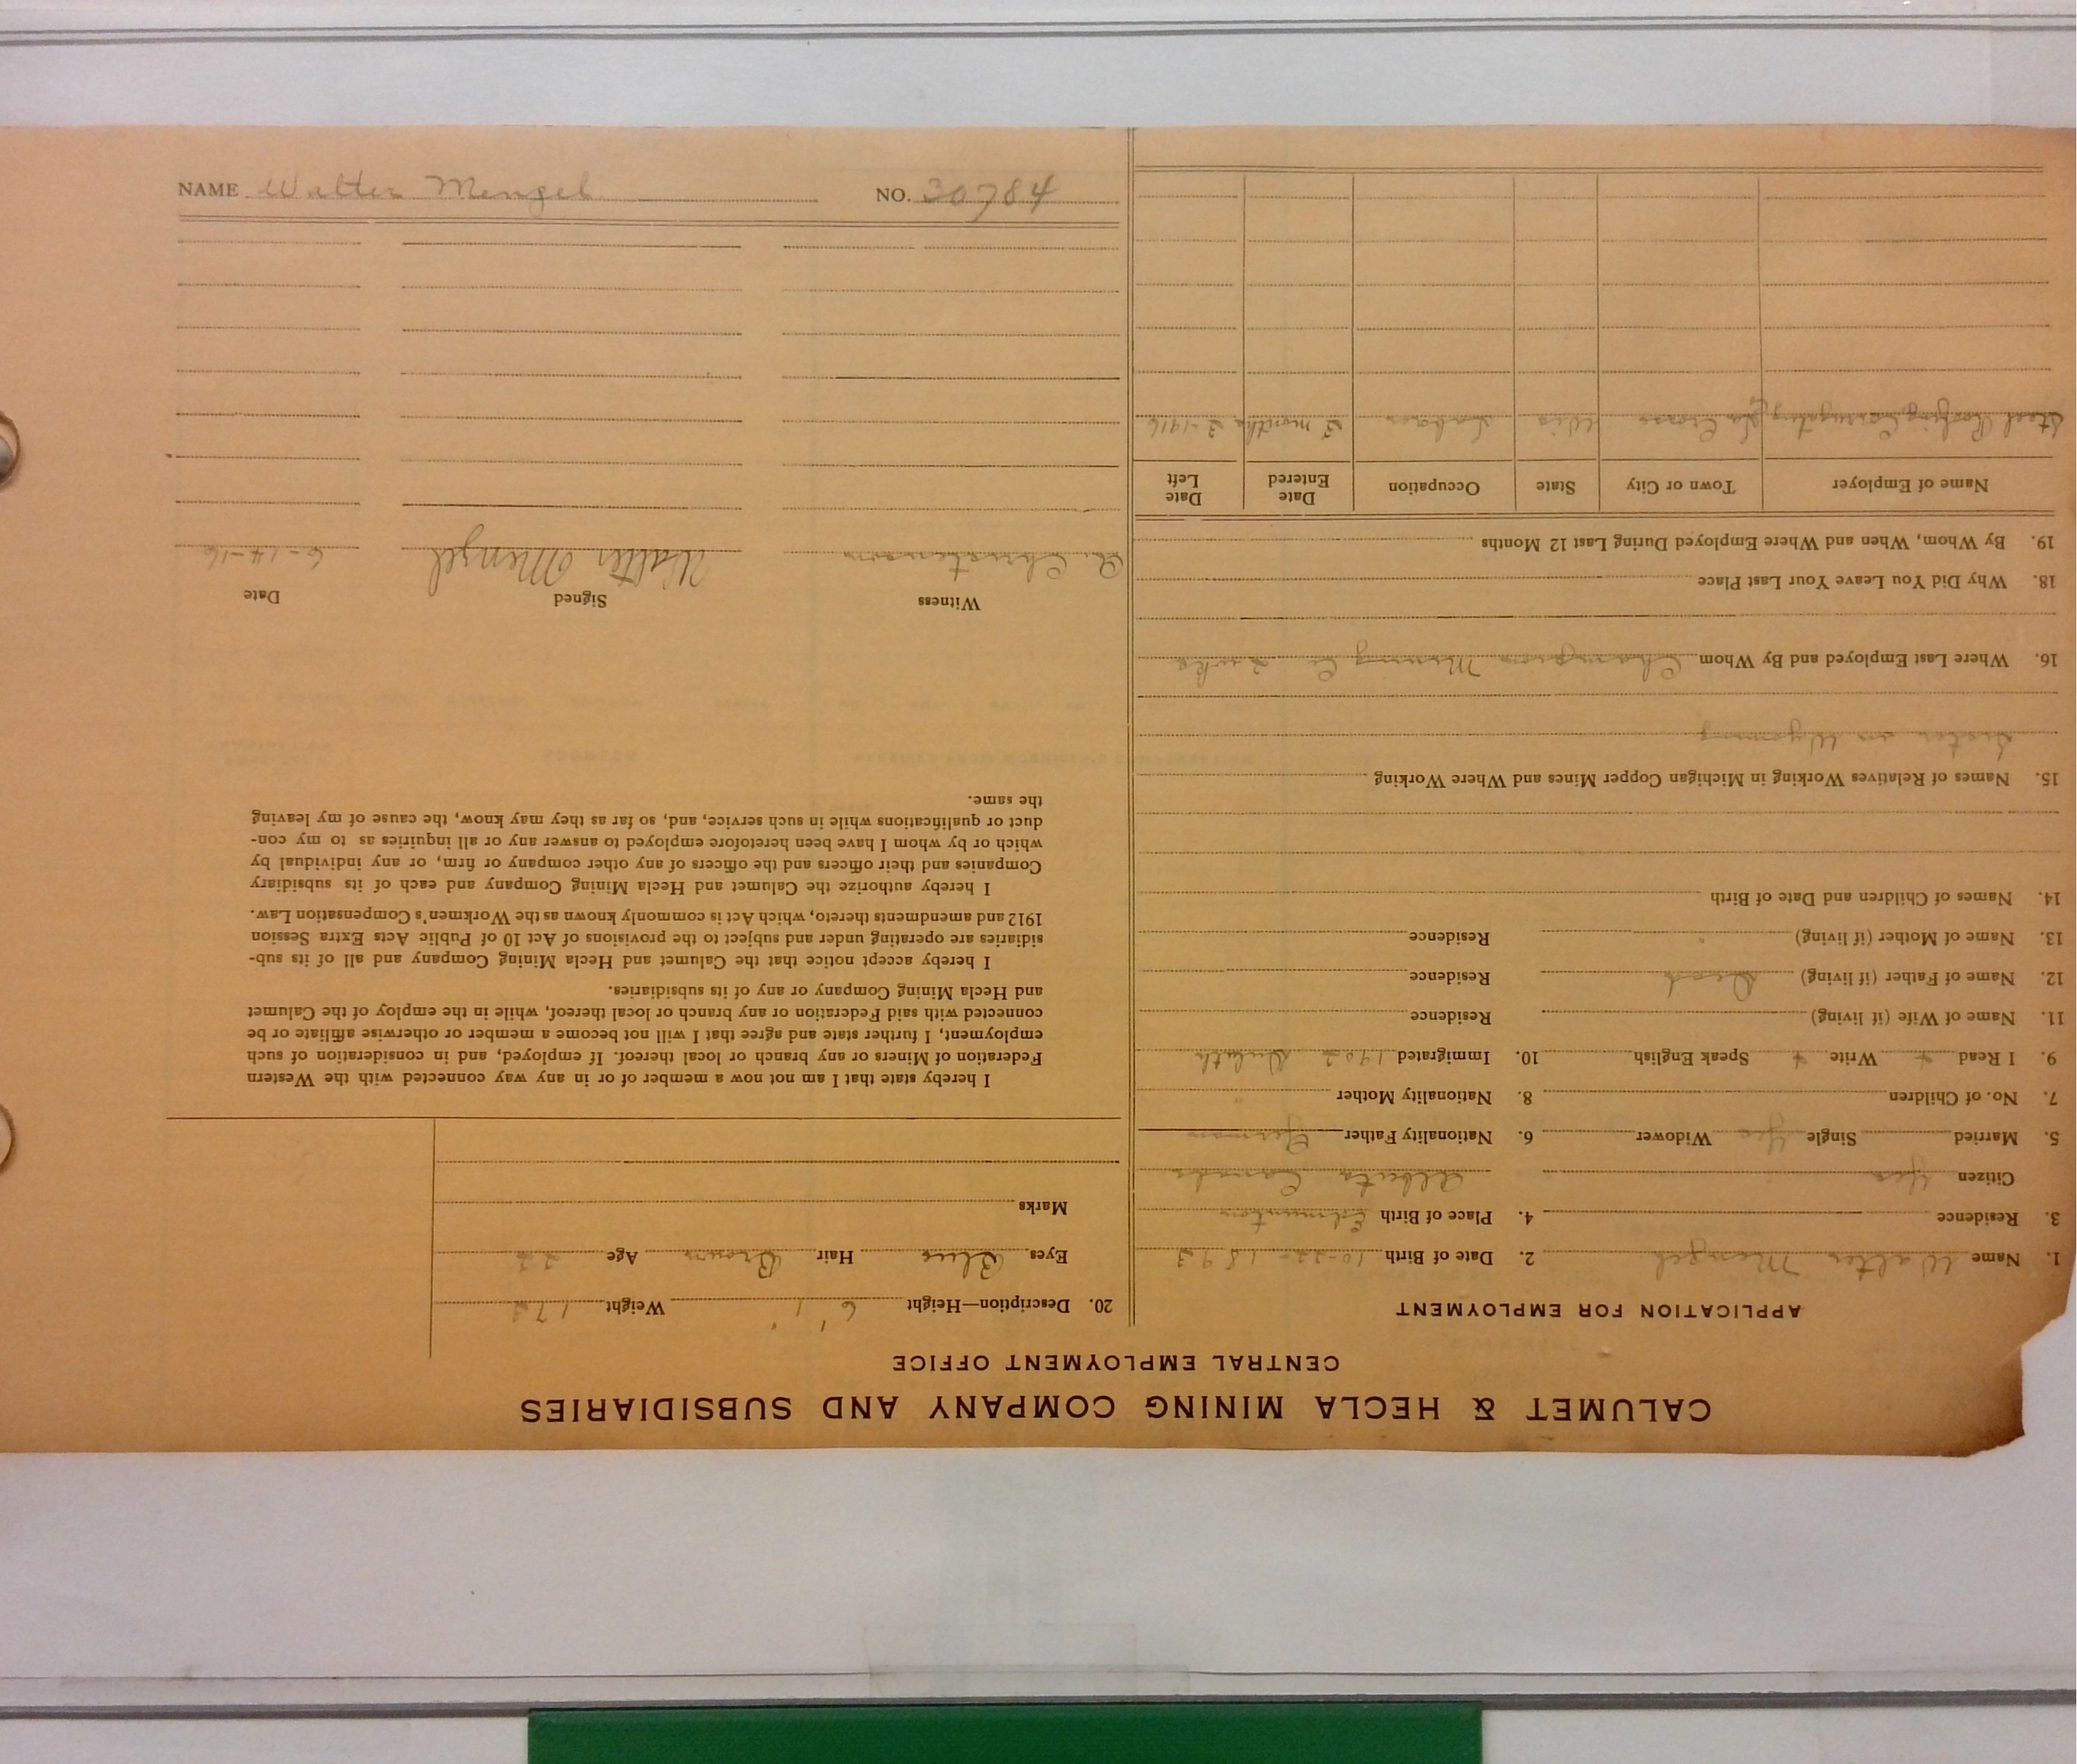 CALUMET & HECLA MINING COMPANY AND SUBSIDIARIES
CENTRAL EMPLOYMENT OFFICE
APPLICATION FOR EMPLOYMENT
1. Name Walter Mengel 2. Date of Birth 10-22-1893
3. Residence 4. Place of Birth Edmunton
Citizen Yes Alberta Canada
5. Married Single Yes Widower 6. Nationality Father German
7. No. of Children 8. Nationality Mother "
9. I Read + Write + Speak English 10. Immigrated 1902 Duluth
11. Name of Wife (if living) Residence
12. Name of Father (if living) Dead Residence
13. Name of Mother (if living) Residence
14. Names of Children and Date of Birth
15. Names of Relatives Working in Michigan Copper Mines and Where Working
Sister in Wyoming
16. Where Last Employed and By Whom Champion Mining Co 2 wks
18. Why Did You Leave Your Last Place
19. By Whom, When and Where Employed During Last 12 Months
Name of Employer Town or City State Occupation Date Entered Date Left
Steel Roofing Corrugating Co La Crosse Wis Laborer 2 months 2-1916
20. Description—Height 6' 1" Weight 172
Eyes Blue Hair Brown Age 22
Marks
I hereby state that I am not now a member of or in any way connected with the Western
Federation of Miners or any branch or local thereof. If employed, and in consideration of such
employment, I further state and agree that I will not become a member or otherwise affiliate or be
connected with said Federation or any branch or local thereof, while in the employ of the Calumet
and Hecla Mining Company or any of its subsidiaries.
I hereby accept notice that the Calumet and Hecla Mining Company and all of its sub-
sidiaries are operating under and subject to the provisions of Act 10 of Public Acts Extra Session
1912 and amendments thereto, which Act is commonly known as the Workmen's Compensation Law.
I hereby authorize the Calumet and Hecla Mining Company and each of its subsidiary
Companies and their officers and the officers of any other company or firm, or any individual by
which or by whom I have been heretofore employed to answer any or all inquiries as to my con-
duct or qualifications while in such service, and, so far as they may know, the cause of my leaving
the same.
Witness Signed Date
Walter Mengel 6-14-16
NAME Walter Mengel NO. 30784